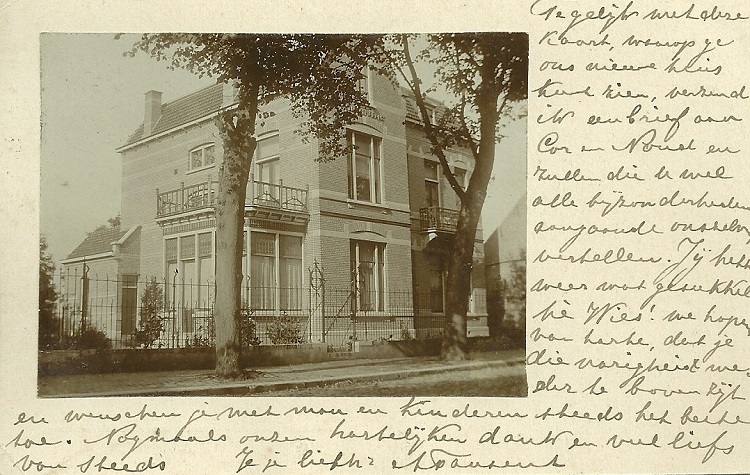 Tegelijk met deze
kaart, waarop je
ons nieuwe huis
kunt zien, verzend
ik een brief aan
Cor en Noud en
zullen die u wel
alle bijzonderheden
aangaande onszelven
vertellen. Jij hebt
weer wat gesukkeld
hè Wies! we hopen
van harte, dat je
die narigheid we-
der te boven zijt
en wenschen je met man en kinderen steeds het beste
toe. Nogmaals onzen hartelijken dank en veel liefs
van steeds Je je liefh: